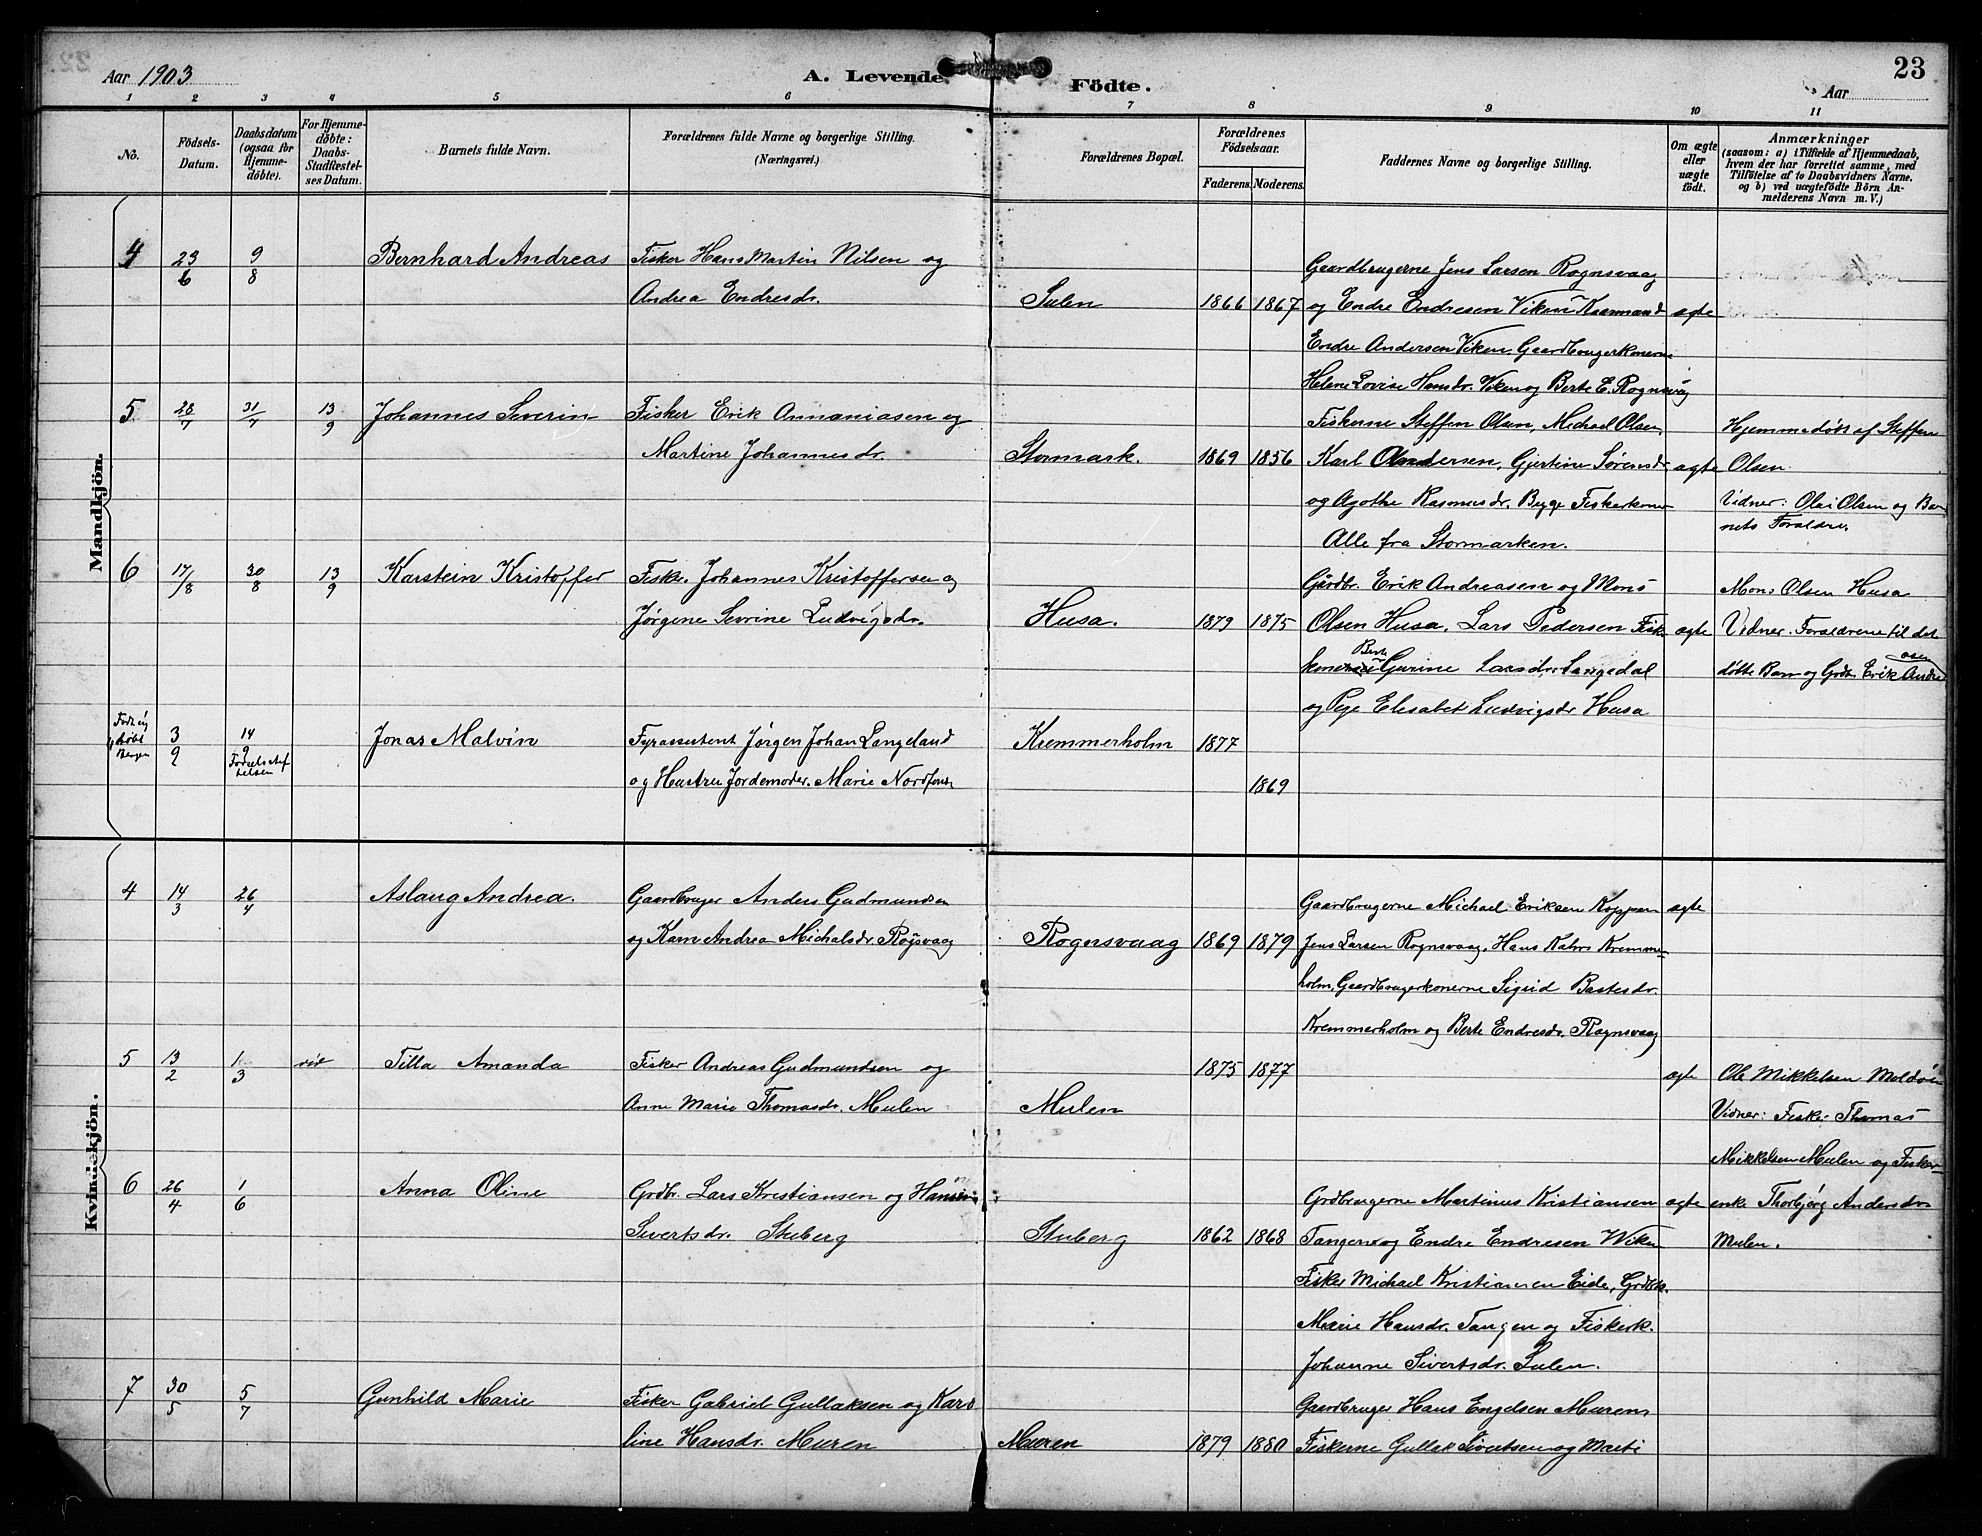 Aar 1903
A. Levende
Födte.
Aar
23
1 2 3 4 5 6 7 8 9 10 11
No.
Födsels-
Datum.
Daabsdatum
(ogsaa for
Hjemme-
döbte).
For Hjemme-
döbte:
Daabs-
Stadfæstel-
ses Datum.
Barnets fulde Navn.
Forældrenes fulde Navne og borgerlige Stilling.
(Næringsvei.)
Forældrenes Bopæl.
Forældrenes
Födselsaar.
Faderens. Moderens.
Faddernes Navne og borgerlige Stilling.
Om ægte
eller
uægte
födt.
Anmærkninger
(saasom: a) i Tilfælde af Hjemmedaab,
hvem der har forrettet samme, med
Tilföielse af to Daabsvidners Navne.
og b) ved uægtefödte Börn An-
melderens Navn m. V.)
Mandkjön.
4 23/6 9/8 Bernhard Andreas
Fisker Hans Martin Nilsen og
Andrea Endresdr.
Sulen 1866 1867
Gaardbrugerne Jens Larsen Rognsvaag
og Endre Endresen Viken
Endre Andersen Viken. Gaardbrugerkonerne
Helene Lovise Hansdr. Viken og Berte E. Rognsvåg
ægte
5 28/7 31/7 13/9 Johannes Severin
Fisker Erik Annaniasen og
Martine Johannesdr.
Stormark. 1869 1856
Fiskerne Steffen Olsen, Michael Olsen,
Karl Andersen, Gjertine Sörensdr
og Agothe Rasmusdr. Begge Fiskerkoner
Alle fra Stormarken.
ægte
Hjemmedöbt af Steffen
Olsen.
Vidner: Olai Olsen og Bar
nets Foraldre.
6 17/8 30/8 13/9 Karstein Kristoffer
Fisker Johannes Kristoffersen og
Jörgine Sevrine Ludvigsdr.
Husa. 1879 1875
Gårdbr. Erik Andreasen og Mons
Olsen Husa. Lars Pedersen Fisk
Berte
Gurine Larsdr. Langedal
og Pige Elisabet Ludvigsdr Husa
ægte
Mons Olsen Husa
Vidner: Foraldrene til det
döbte Barn og Grdbr. Erik Andre
asen
Födt og
döbt
Bergen
3/9 14/9
Födselsstif
telsen
Jonas Malvin
Fyrassistent Jörgen Johan Langeland
og Hustru Jordemoder Marie
Kremmerholm 1877
1869
Kvindekjön.
4 14/3 26/4 Aslaug Andrea.
Gaardbruger Anders Gudmundsen
og Karn Andrea Michalsdr.
Rognsvaag 1869 1879
Gaardbrugerne Michael Eriksen
Jens Larsen Rognsvaag, Hans Kremmer-
holm, Gaardbrugerkonerne Sigrid Bastesdr.
Kremmerholm og Berte Endresdr. Rognsvaag
ægte
5 13/2 1/3 död Tilla Amanda
Fisker Andreas Gudmundsen og
Anne Marie Thomasdr. Mulen
Mulen 1875 1877
ægte
Ole Mikkelsen
Vidner: Fisker Thomas
Mikkelsen Mulen og Fisker-
enke Thorbjörg Andersdr
Mulen.
6 26/4 1/6 Anna Oline
Grdbr. Lars Kristiansen og
Sivertsdr. Stuberg
Stuberg 1862 1868
Grdbrugerne Martinus Kristiansen
Tangen og Endre Endresen Wiken
Fisker Michael Kristiansen Eide, Grdbrk.
Marie Hansdr. Tangen og Fiskerk.
Johanne Sivertsdr. Sulen.
ægte
7 30/5 5/7 Gunhild Marie
Fisker Gabriel Gullaksen og Karo
line Hansdr. Muren
Muren 1879 1880
Gaardbruger Hans Engelsen Muren
Fiskerne Gullak Sivertsen og Marti